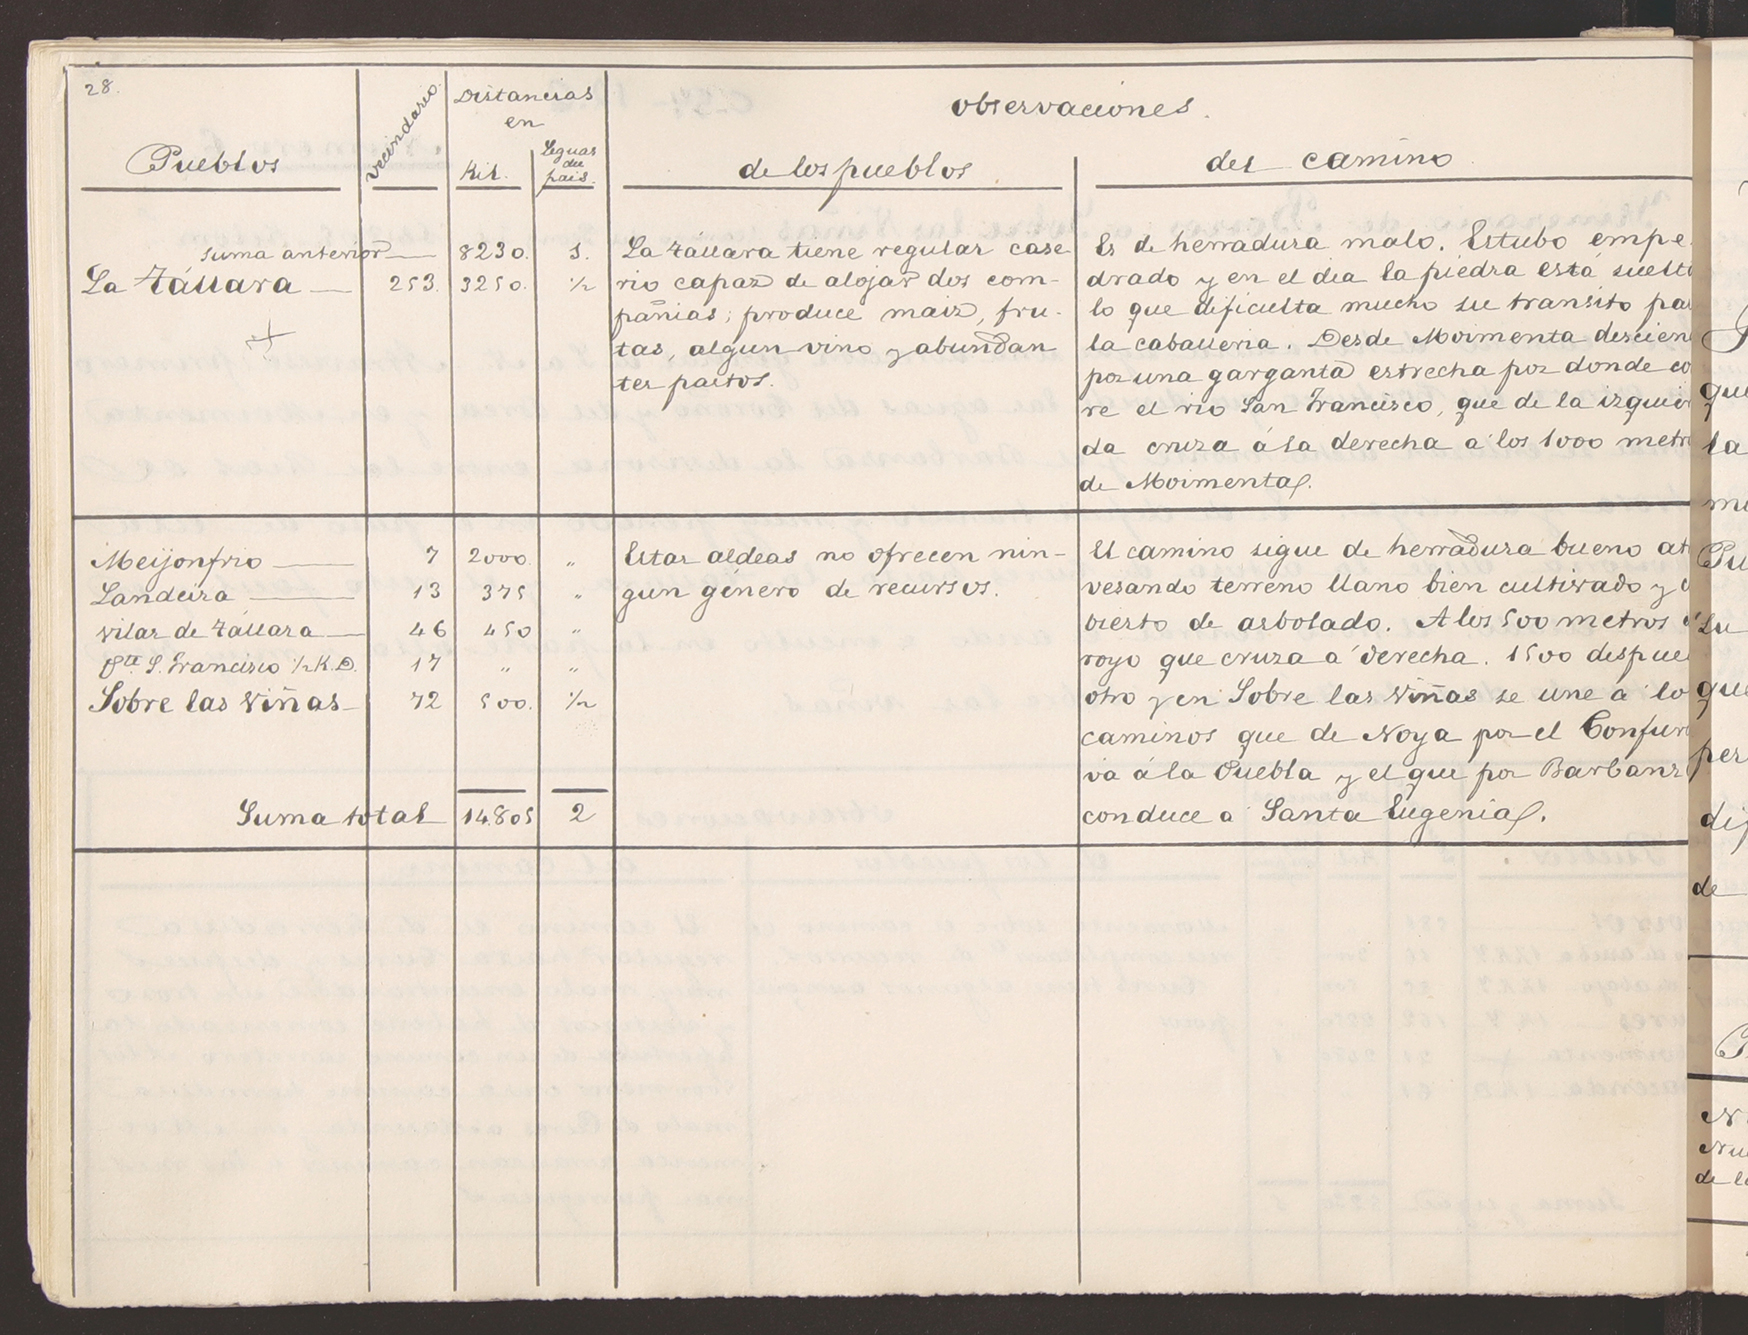 28.
Pueblos
Vecindario.
Distancias
en
Kil.
Leguas
del
pais.
Observaciones.
de los pueblos
del camino
Suma anterior 8230. 1.
La Tállara 253. 3250. ½
La Tállara tiene regular case
rio capaz de alojar dos com-
pañias; produce maiz, fru-
tas, algun vino y abundan
tes pastos.
Es de herradura malo. Estubo empe
drado y en el dia la piedra está suelt
lo que dificulta mucho su transito pa
la caballeria. Desde Moimenta descien
por una garganta estrecha por donde co
re el rio San Francisco, que de la izquier
da cruza á la derecha a los 1000 metr
de Moimenta.
Meijonfrio 7 2000. "
Landeira 13 375 "
Vilar de Tállara 46 450 "
Pte. S. Francisco ½ K.D. 17 " "
Sobre las Viñas 72 500. ½
Suma total 14.805 2
Estas aldeas no ofrecen nin-
gun género de recursos.
El camino sigue de herradura bueno at
vesando terreno llano bien cultivado y
bierto de arbolado. A los 500 metros
royo que cruza a derecha. 1500 despue
otro y en Sobre las Viñas se une á lo
caminos que de Noya por el Confur
va á la Puebla y el que por Barbanz
conduce a Santa Eugenia.
que
la
me
Pu
Su
que
per
dif
de
Nu
de l